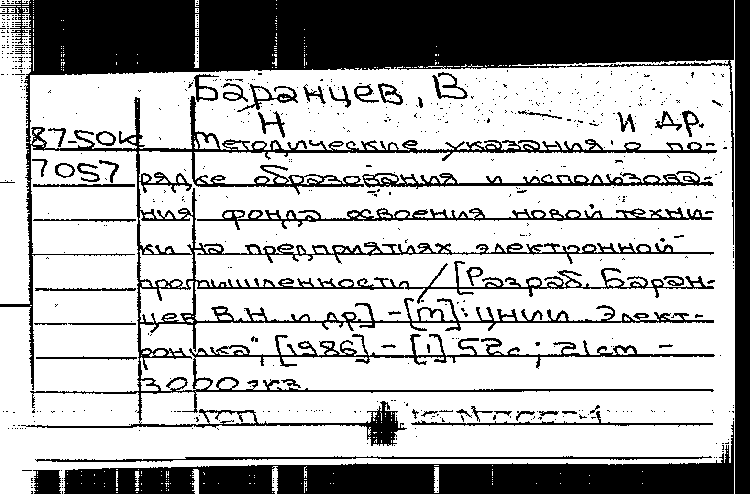 Баранцев, В.
Н и др.
87-50к Методические указания о по-
7057 рядке образования и использова-
ния фонда освоения новой техни-
ки на предприятиях электронной
промышленности / [Разраб. Баран-
цев В.Н. и др.] - [М]: ЦНИИ Элект-
роника", [1986]. - [1], 52с; 21см -
3000 экз.